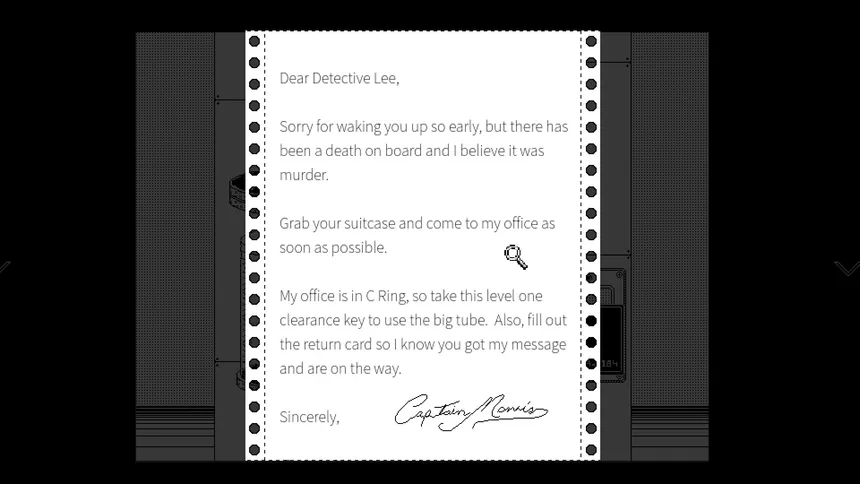 Dear Detective Lee,
Sorry for waking you up so early, but there has
been a death on board and I believe it was
murder.
Grab your suitcase and come to my office as
soon as possible.
My office is in C Ring, so take this level one
clearance key to use the big tube.  Also, fill out
the return card so I know you got my message
and are on the way.
Sincerely,
Captain Morris